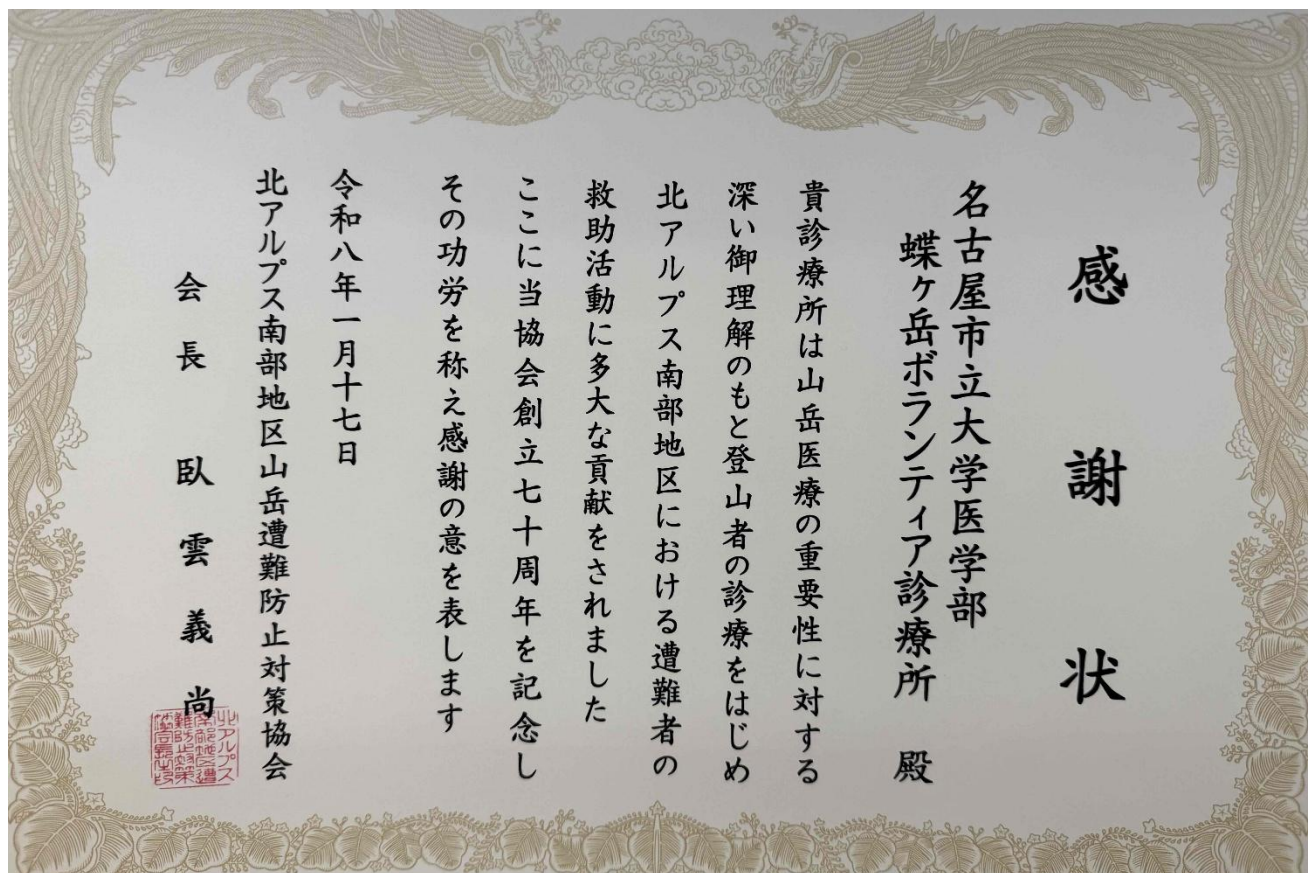 感謝状
名古屋市立大学医学部
蝶ヶ岳ボランティア診療所 殿
貴診療所は山岳医療の重要性に対する
深い御理解のもと登山者の診療をはじめ
北アルプス南部地区における遭難者の
救助活動に多大な貢献をされました
ここに当協会創立七十周年を記念し
その功労を称え感謝の意を表します
令和八年一月十七日
北アルプス南部地区山岳遭難防止対策協会
会長 臥雲義尚
北アルプス
南部地区遭
難防止対策
協会長之印